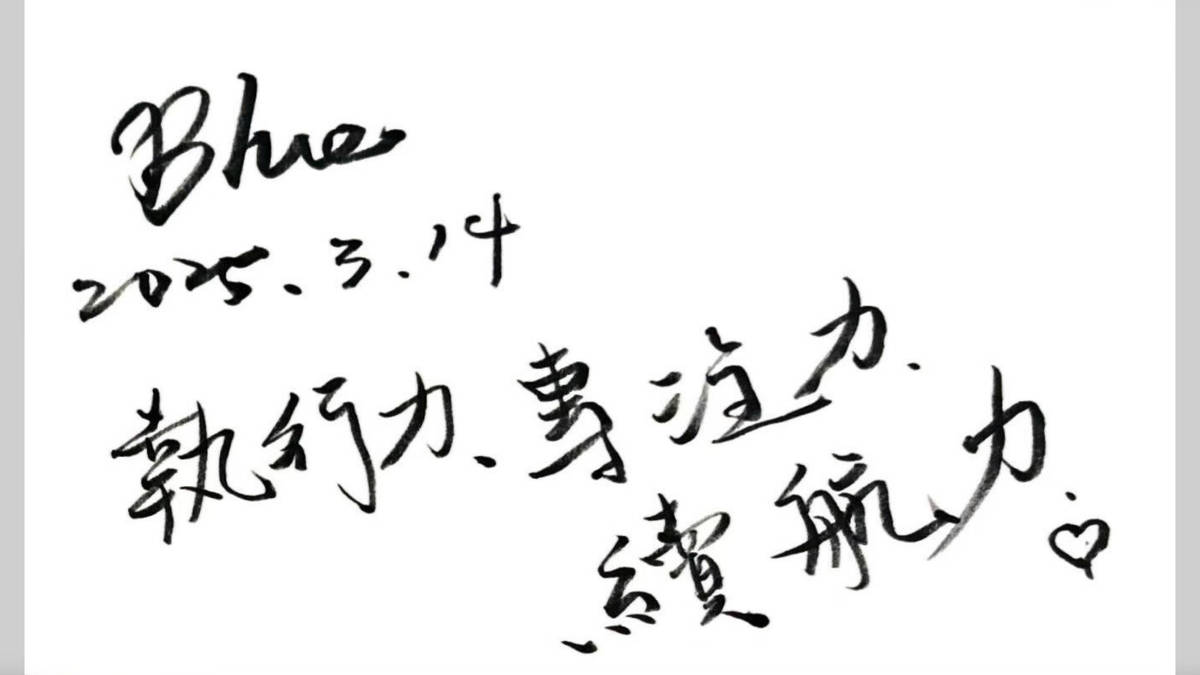 Blue
2025.3.14
執行力、專注力、
續航力.♡